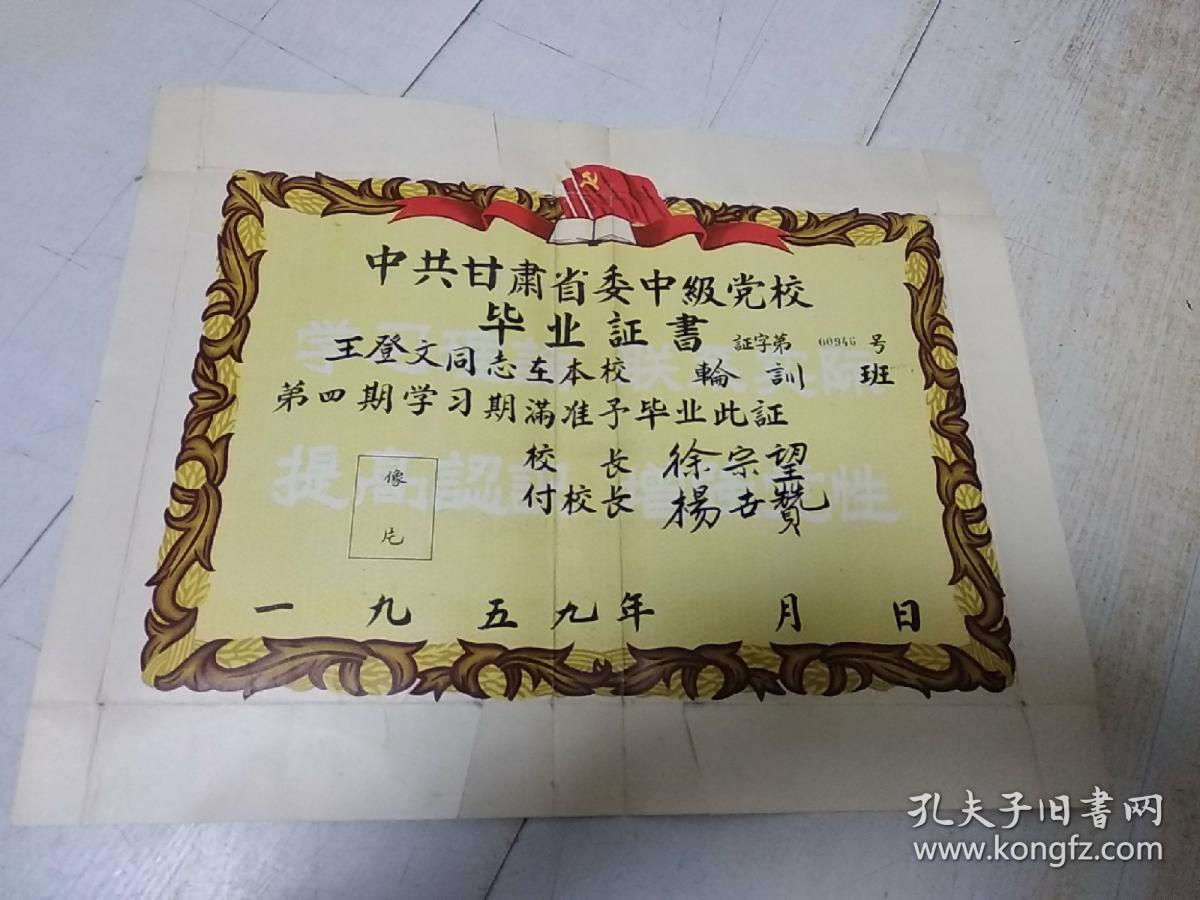 中共甘肃省委中級党校
毕业証書
証字第 00946 号
王登文同志在本校 輪訓 班
第四期学习期滿准予毕业此証
校長 徐宗望
付校長 楊世贊
像
片
一九五九年 月 日
学习 联 实际
提高認識 增 党性
孔夫子旧书网
www.kongfz.com